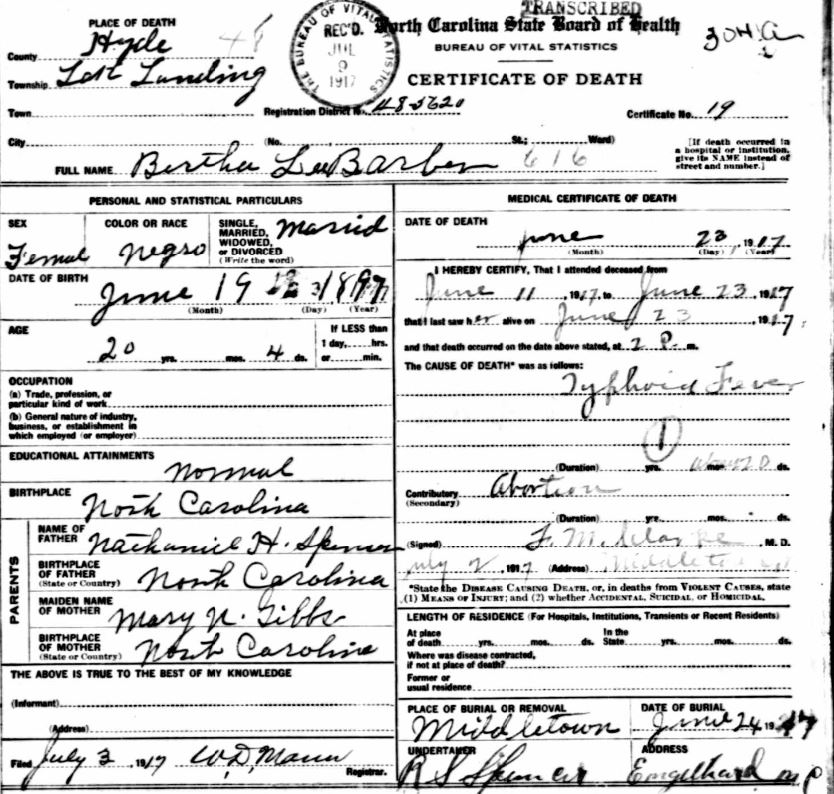 TRANSCRIBED
PLACE OF DEATH
North Carolina State Board of Health
BUREAU OF VITAL STATISTICS
CERTIFICATE OF DEATH
THE BUREAU OF VITAL STATISTICS
REC'D.
JUL
9
1917
County Hyde 48
Township Landing
Town
Registration District No. 48-5620
Certificate No. 19
City (No. St.; Ward)
[If death occurred in a hospital or institution, give its NAME instead of street and number.]
FULL NAME Bertha Lee Barber 616
PERSONAL AND STATISTICAL PARTICULARS
SEX
Femal
COLOR OR RACE
Negro
SINGLE, MARRIED, WIDOWED, or DIVORCED (Write the word)
Married
DATE OF BIRTH
June 19 1897
(Month) (Day) (Year)
AGE
20 yrs. mos. 4 ds.
If LESS than 1 day, hrs. or min.
OCCUPATION
(a) Trade, profession, or particular kind of work
(b) General nature of industry, business, or establishment in which employed (or employer)
EDUCATIONAL ATTAINMENTS
Normal
BIRTHPLACE
North Carolina
PARENTS
NAME OF FATHER
Nathaniel H. Spencer
BIRTHPLACE OF FATHER (State or Country)
North Carolina
MAIDEN NAME OF MOTHER
Mary N. Gibbs
BIRTHPLACE OF MOTHER (State or Country)
North Carolina
THE ABOVE IS TRUE TO THE BEST OF MY KNOWLEDGE
(Informant)
(Address)
Filed July 3 1917 W. D. Mann
Registrar.
MEDICAL CERTIFICATE OF DEATH
DATE OF DEATH
June 23, 1917
(Month) (Day) (Year)
I HEREBY CERTIFY, That I attended deceased from
June 11, 1917, to June 23, 1917
that I last saw her alive on June 23, 1917,
and that death occurred on the date above stated, at 2 P. m.
The CAUSE OF DEATH* was as follows:
Typhoid Fever
1
(Duration) yrs. mos. ds.
Contributory Abortion
(Secondary)
(Duration) yrs. mos. ds.
(Signed) F. M. M.D.
July 2, 1917 (Address)
*State the DISEASE CAUSING DEATH, or, in deaths from VIOLENT CAUSES, state
(1) MEANS OF INJURY; and (2) whether ACCIDENTAL, SUICIDAL, OR HOMICIDAL.
LENGTH OF RESIDENCE (For Hospitals, Institutions, Transients or Recent Residents)
At place of death yrs. mos. ds. In the State yrs. mos. ds.
Where was disease contracted, if not at place of death?
Former or usual residence
PLACE OF BURIAL OR REMOVAL
Middletown
DATE OF BURIAL
June 24 1917
UNDERTAKER
R S Spencer
ADDRESS
Engelhard